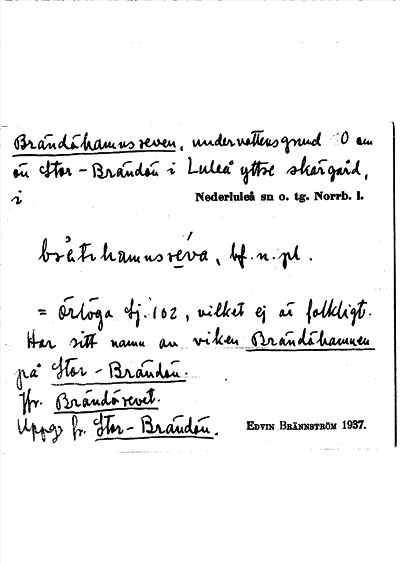 Brändöhamnsreven, undervattensgrund O om
ön Stor-Brändön i Luleå yttre skärgård,
i Nederluleå sn o. tg. Norrb. l.
bf. n. pl.
= Örlöga Sj. 102, vilket ej är folkligt.
Har sitt namn av viken Brändöhamnen
på Stor-Brändön.
Jfr. Brändörevet.
Uppg. fr. Stor-Brändön.
EDVIN BRÄNNSTRÖM 1937.